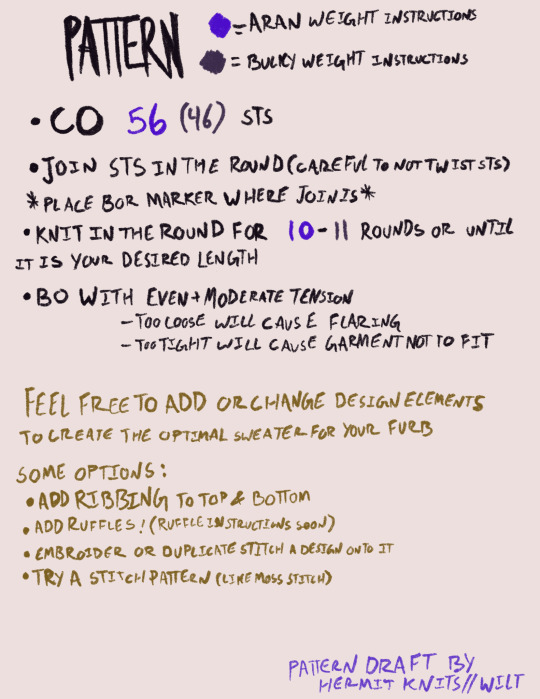 PATTERN
= ARAN WEIGHT INSTRUCTIONS
= BULKY WEIGHT INSTRUCTIONS
• CO 56 (46) STS
• JOIN STS IN THE ROUND (CAREFUL TO NOT TWIST STS)
* PLACE BOR MARKER WHERE JOIN IS *
• KNIT IN THE ROUND FOR 10-11 ROUNDS OR UNTIL
IT IS YOUR DESIRED LENGTH
• BO WITH EVEN + MODERATE TENSION
- TOO LOOSE WILL CAUSE FLARING
- TOO TIGHT WILL CAUSE GARMENT NOT TO FIT
FEEL FREE TO ADD OR CHANGE DESIGN ELEMENTS
TO CREATE THE OPTIMAL SWEATER FOR YOUR FURB
SOME OPTIONS:
• ADD RIBBING TO TOP & BOTTOM
• ADD RUFFLES! (RUFFLE INSTRUCTIONS SOON)
• EMBROIDER OR DUPLICATE STITCH A DESIGN ONTO IT
• TRY A STITCH PATTERN (LIKE MOSS STITCH)
PATTERN DRAFT BY
HERMIT KNITS//WILT